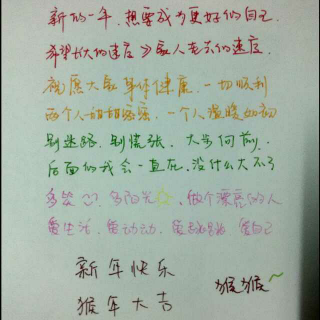 新的一年，想要成为更好的自己
希望成长的速度》家人老去的速度.
祝愿大家身体健康，一切顺利
两个人甜甜蜜蜜，一个人温暖如初
别迷路，别慌张，大步向前，
后面的我会一直在，没什么大不了
多笑，多阳光，做个漂亮的人
爱生活，爱动动，爱自己
新年快乐
猴年大吉
猴猴~